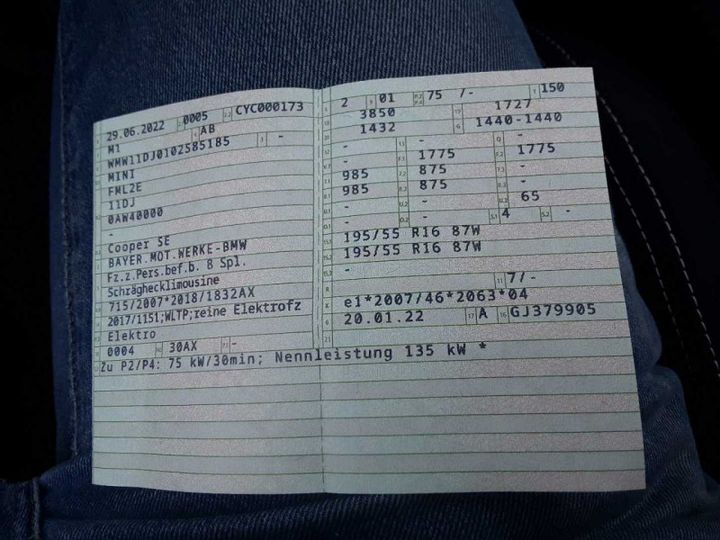 29.06.2022 0005 CYC000173
M1 AB
WMW11DJ0102S85185 -
MINI
FML2E
11DJ
0AW40000
-
Cooper SE
BAYER.MOT.WERKE-BMW
Fz.z.Pers.bef.b. 8 Spl.
Schräghecklimousine
715/2007*2018/1832AX
2017/1151;WLTP;reine Elektrofz
Elektro
0004 30AX -
2 01 75 /- 150
3850 1727
1432 1440-1440
- - -
- 1775 1775
985 875 -
985 875 -
- - 65
- - 4 -
195/55 R16 87W
195/55 R16 87W
-
7/-
e1*2007/46*2063*04
20.01.22 A GJ379905
Zu P2/P4: 75 kW/30min; Nennleistung 135 kW *